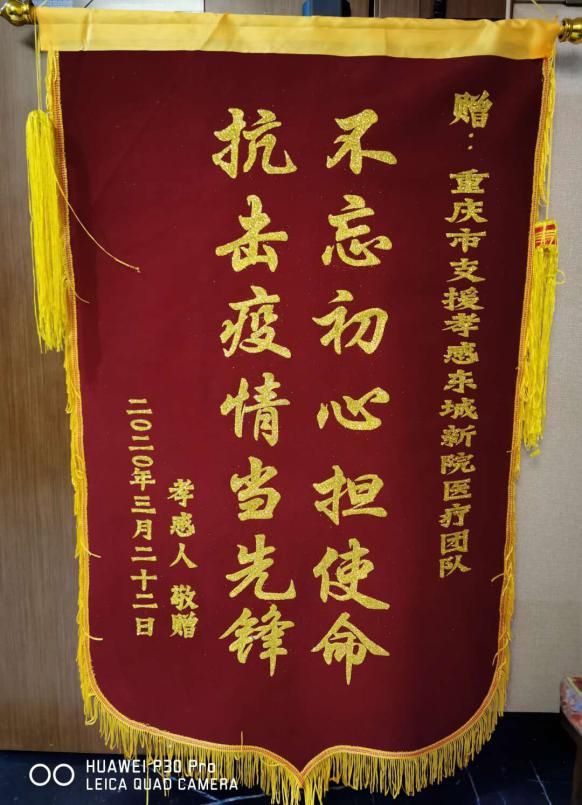 赠：重庆市支援孝感东城新院医疗团队
不忘初心担使命
抗击疫情当先锋
孝感人 敬赠
二〇二〇年三月二十二日
HUAWEI P30 Pro
LEICA QUAD CAMERA